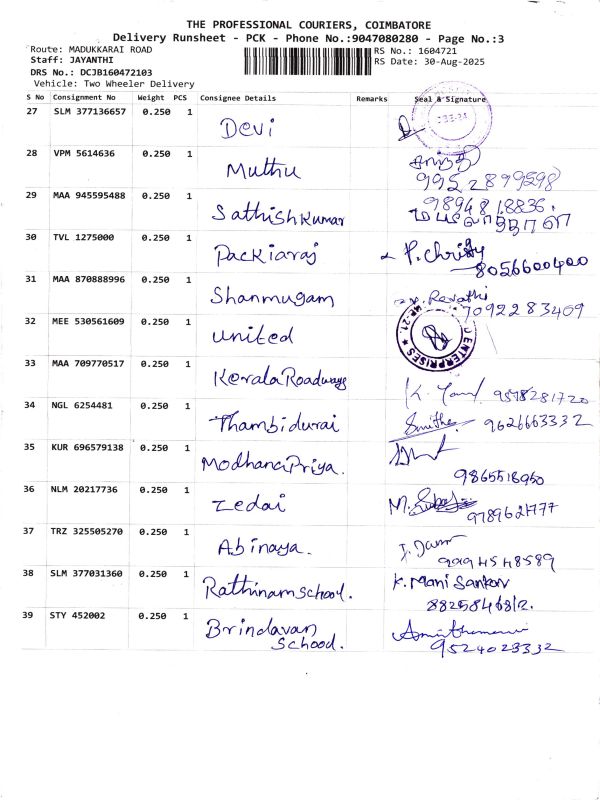 THE PROFESSIONAL COURIERS, COIMBATORE
Delivery Runsheet - PCK - Phone No.:9047080280 - Page No.:3
Route: MADUKKARAI ROAD RS No.: 1604721
Staff: JAYANTHI RS Date: 30-Aug-2025
DRS No.: DCJB160472103
Vehicle: Two Wheeler Delivery
S No Consignment No Weight PCS Consignee Details Remarks Seal & Signature
27 SLM 377136657 0.250 1 Devi
28 VPM 5614636 0.250 1 Muthu
9952899598
29 MAA 945595488 0.250 1 Sathishkumar 9894818836.
30 TVL 1275000 0.250 1 Packiaraj P. Christy
8056600400
31 MAA 870888996 0.250 1 Shanmugam Revathi
7092283409
32 MEE 530561609 0.250 1 United ENTERPRISES
33 MAA 709770517 0.250 1 Kerala Roadways
K. 9578281720
34 NGL 6254481 0.250 1 Thambidurai Smitha 9626663332
35 KUR 696579138 0.250 1 ModhanaPriya.
9865518950
36 NLM 20217736 0.250 1 Zedai M.
9789621777
37 TRZ 325505270 0.250 1 Abinaya.
9994548589
38 SLM 377031360 0.250 1 Rathinam school. K. Mani Sankar
8825846812.
39 STY 452002 0.250 1 Brindavan
School. 9524023332